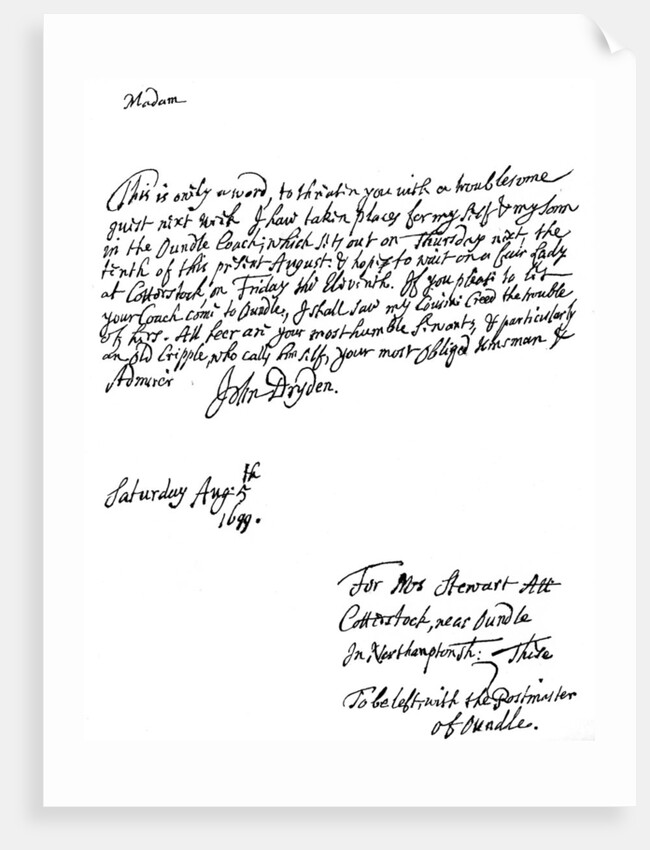 Madam
This is only a word, to threaten you with a troublesome
guest next week I have taken places for my self & my sonn
in the Oundle Coach, which sets out on Thursday next, the
tenth of this present August: & hope to wait on a fair Lady
at Cotterstock on Friday the Eleventh. If you please to let
your Coach come to Oundle, I shall save my Cousin Creed the trouble
of hers. All heer are your most humble Servants, & particularly
an old Cripple, who calls him self, your most obliged Kinsman &
Admirer
John Dryden.
Saturday Aug: 5th
1699.
For Mrs Stewart Att
Cotterstock, near Oundle
In Northamptonsh: These
To be left, with the Postmaster
of Oundle.